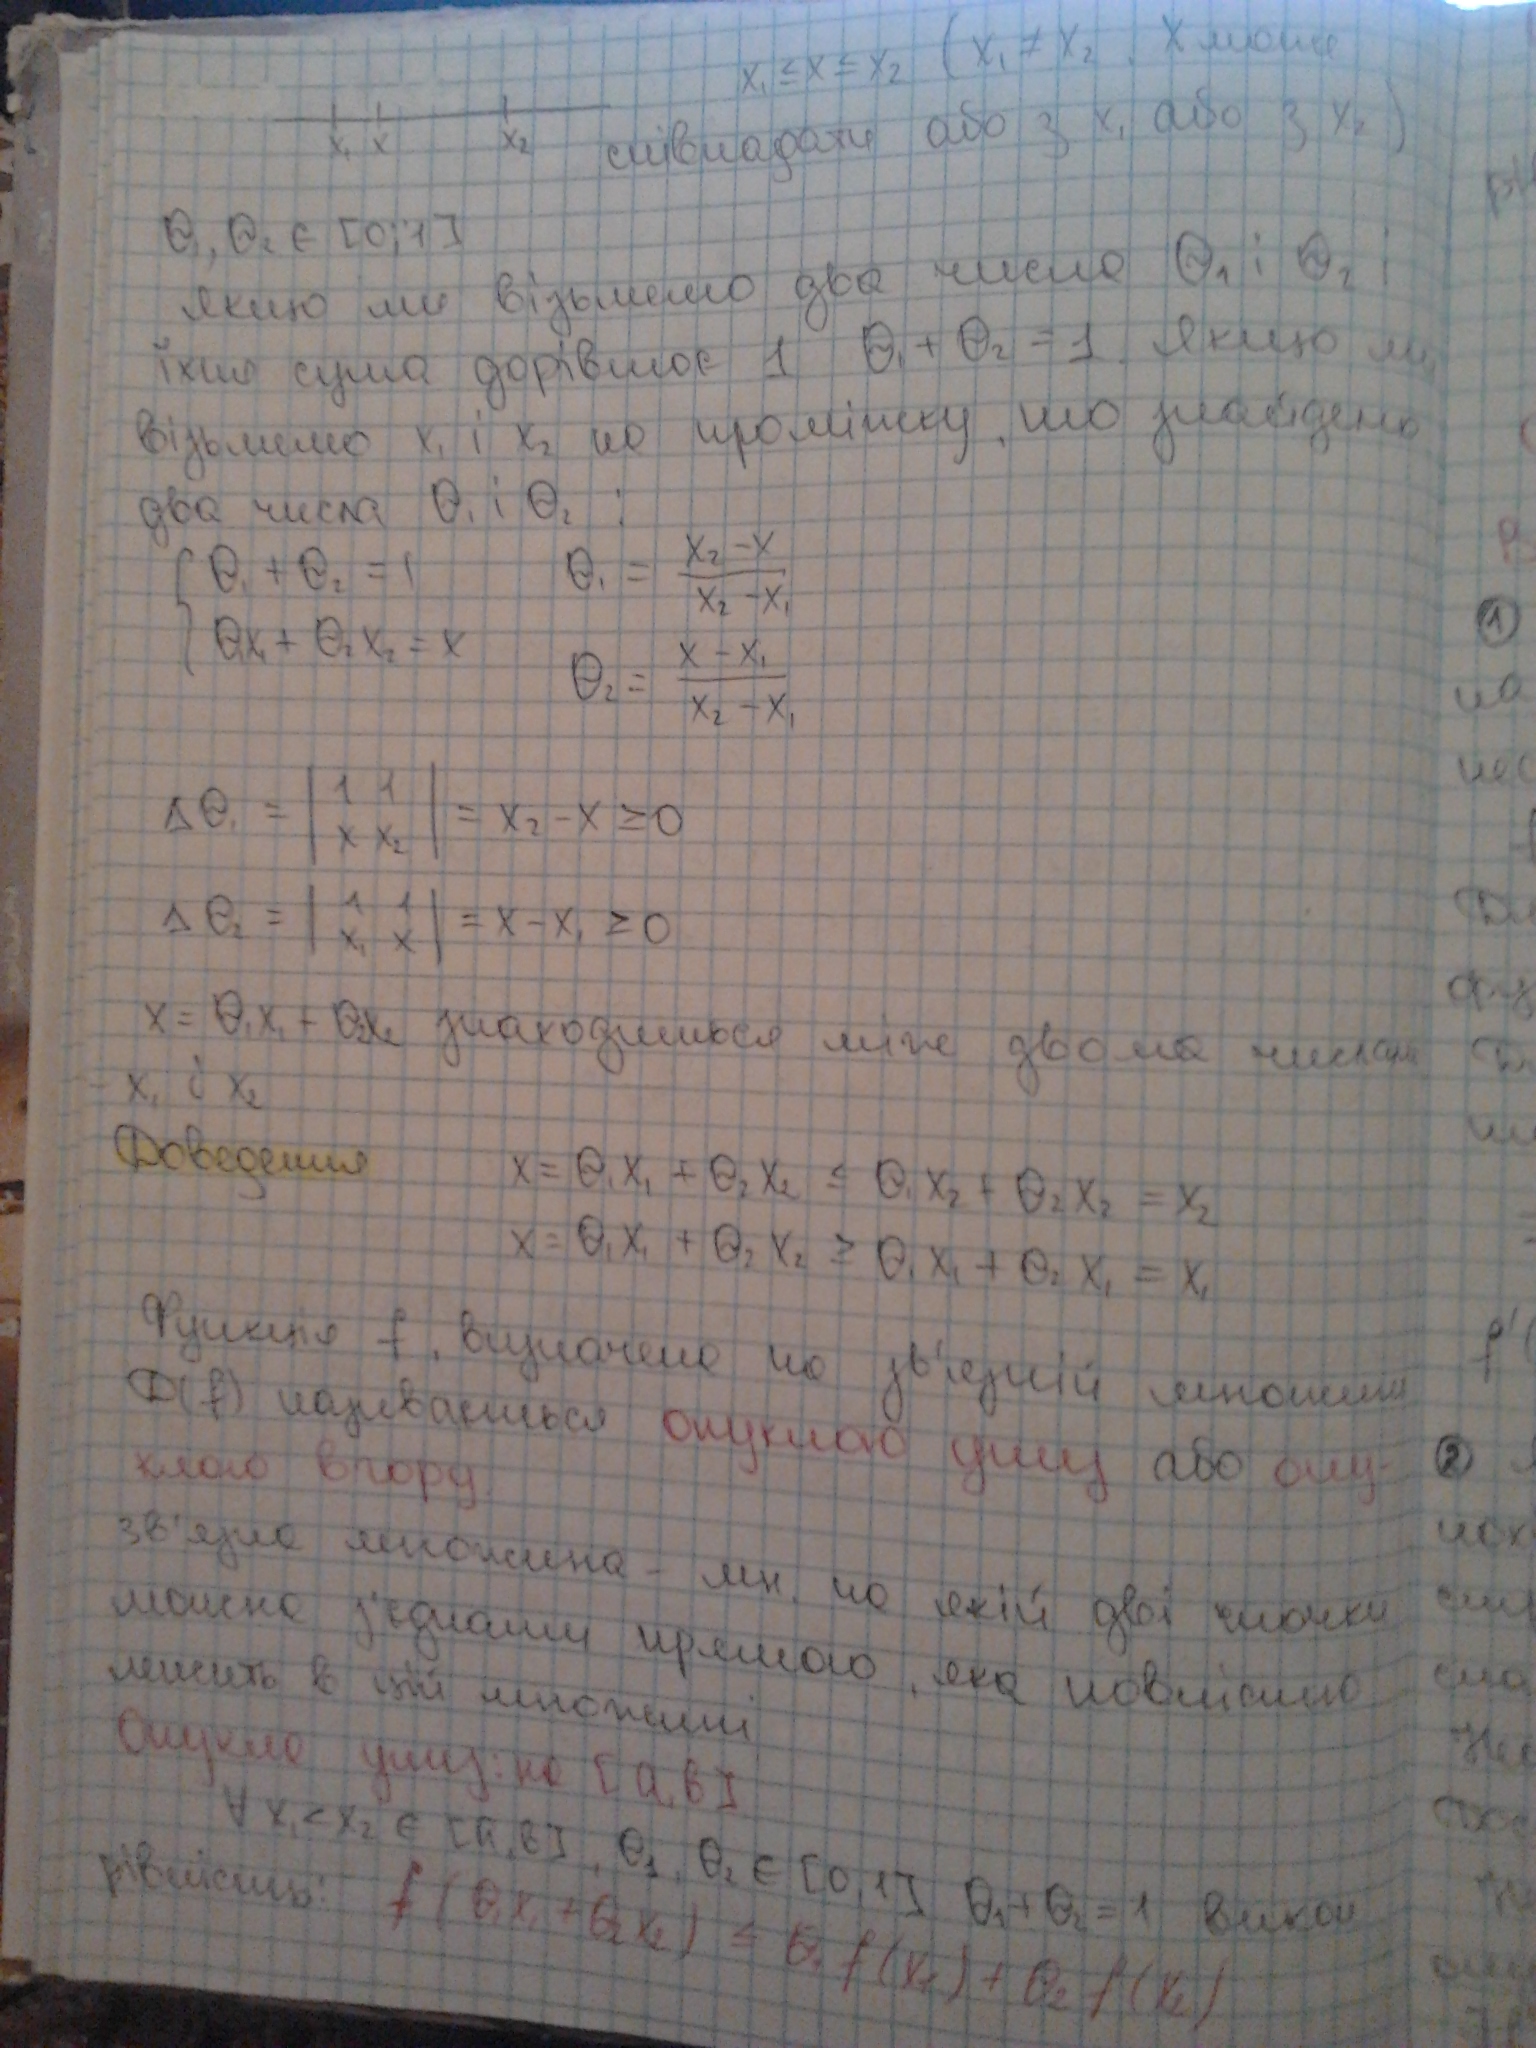 x₁ ≤ x ≤ x₂ (x₁ ≠ x₂. x може
x₁ x x₂ співпадати або з x₁ або з x₂)
Θ₁, Θ₂ ∈ [0;1]
якщо ми візьмемо два числа Θ₁ і Θ₂ і
їхня сума дорівнює 1 Θ₁ + Θ₂ = 1. Якщо ми
візьмемо x₁ і x₂ на проміжку, то знайдемо
два числа Θ₁ і Θ₂ :
{ Θ₁ + Θ₂ = 1 Θ₁ = (x₂ - x)/(x₂ - x₁)
Θ₁x₁ + Θ₂x₂ = x Θ₂ = (x - x₁)/(x₂ - x₁)
ΔΘ₁ = |1 1; x x₂| = x₂ - x ≥ 0
ΔΘ₂ = |1 1; x₁ x| = x - x₁ ≥ 0
x = Θ₁x₁ + Θ₂x₂ знаходиться між двома числами
x₁ і x₂
Доведення x = Θ₁x₁ + Θ₂x₂ ≤ Θ₁x₂ + Θ₂x₂ = x₂
x = Θ₁x₁ + Θ₂x₂ ≥ Θ₁x₁ + Θ₂x₁ = x₁
Функція f, визначена на зв'язній множині
D(f) називається опуклою униз або опу-
клою вгору
зв'язна множина - мн. на якій дві точки
можна з'єднати прямою, яка повністю
лежить в цій множині
Опукла униз: на [a,b]
∀ x₁ < x₂ ∈ [a,b], Θ₁, Θ₂ ∈ [0,1] Θ₁ + Θ₂ = 1 викон
рівність: f(Θ₁x₁ + Θ₂x₂) ≤ Θ₁f(x₁) + Θ₂f(x₂)